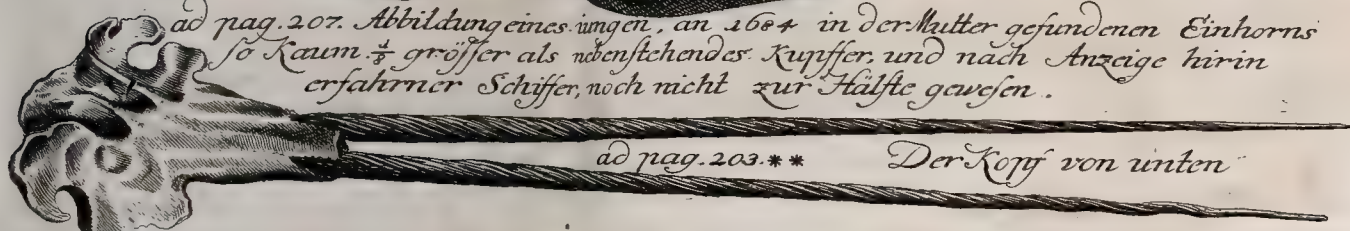 ad pag. 207. Abbildung eines iungen, an 1684 in der Mutter gefundenen Einhorns
so Kaum 1/5 grösser als nebenstehendes Kupffer, und nach Anzeige hirin
erfahrner Schiffer, noch nicht zur Hälfte gewesen.
ad pag. 203. ** Der Kopf von unten